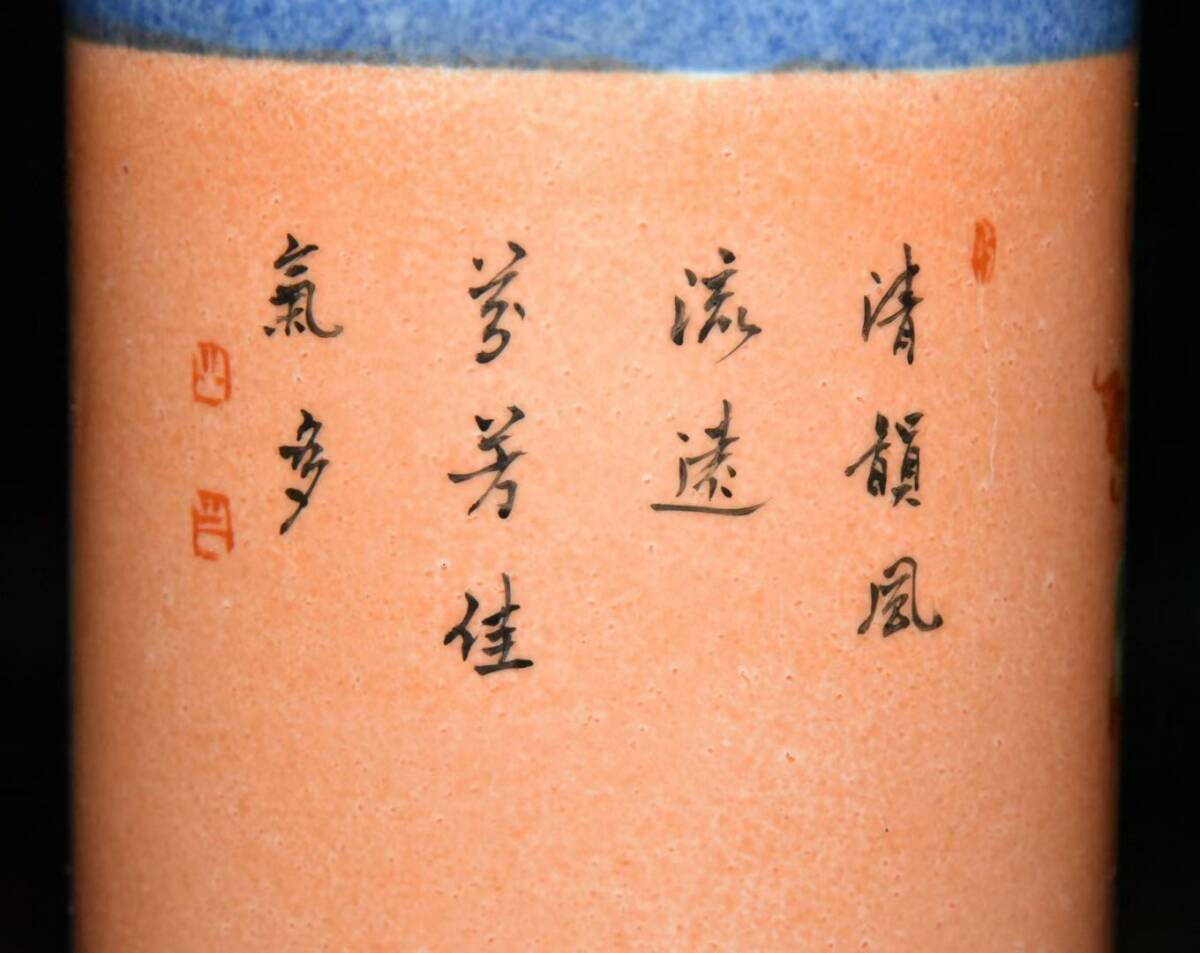 清韻風
流遠
芬芳佳
氣多